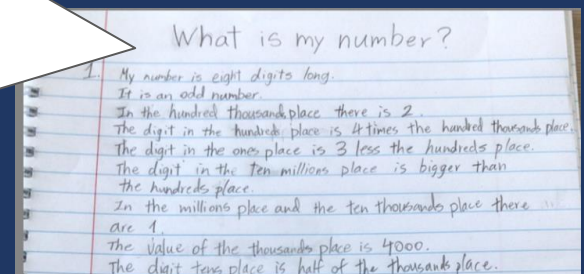 What is my number?
1. My number is eight digits long.
It is an odd number.
In the hundred thousands place there is 2.
The digit in the hundreds place is 4 times the hundred thousands place.
The digit in the ones place is 3 less the hundreds place.
The digit in the Ten millions place is bigger than
the hundreds place.
In the millions place and the ten thousands place there
are 1.
The value of the thousands place is 4000.
The digit tens place is half of the thousands place.